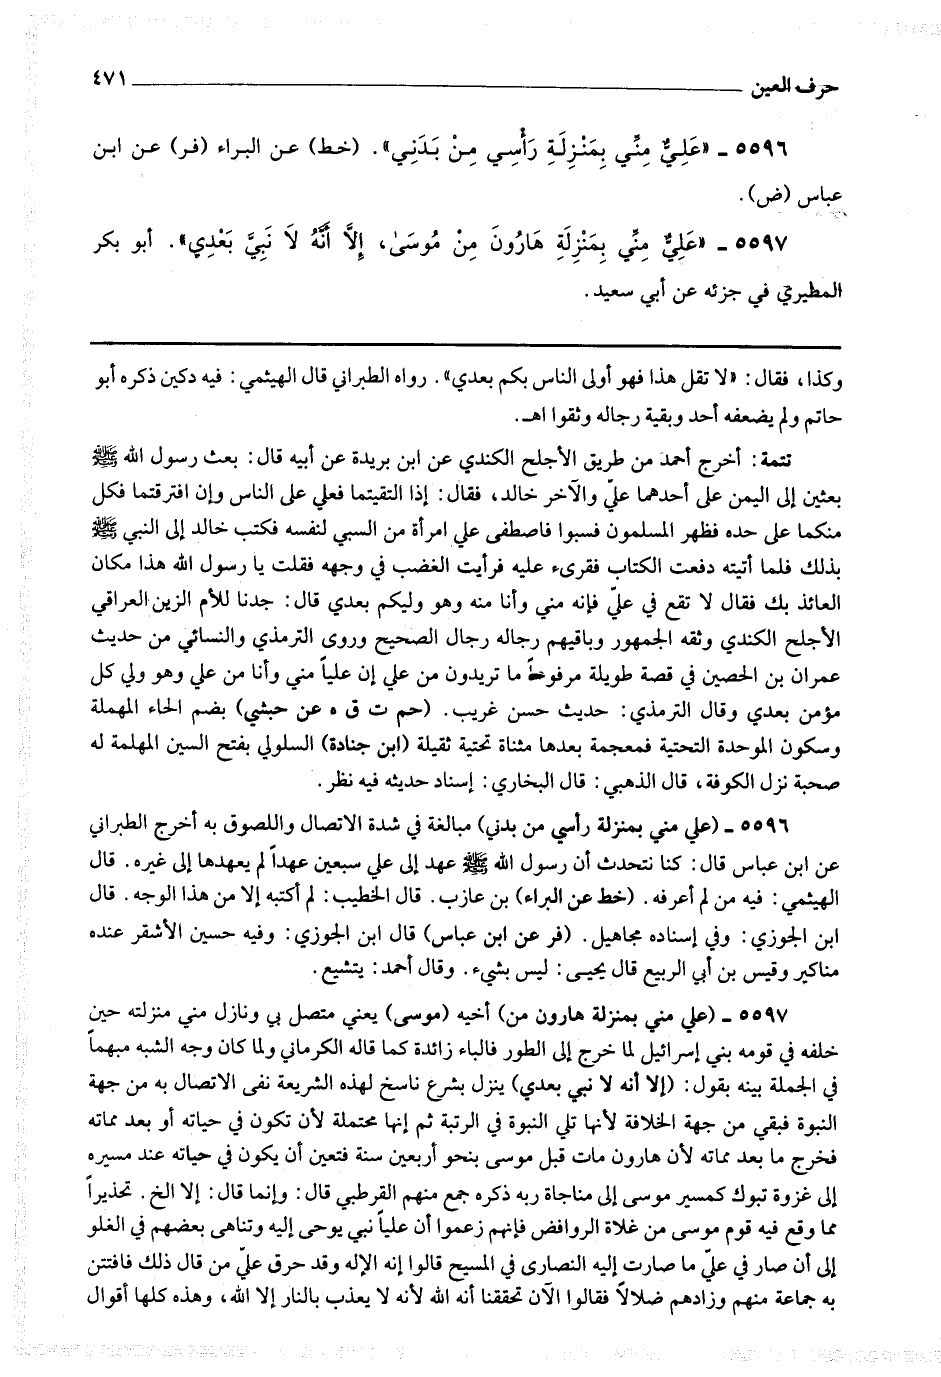 حرف العين ٤٧١
٥٥٩٦ ـ «عَلِيٌّ مِنِّي بِمَنْزِلَةِ رَأْسِي مِنْ بَدَنِي». (خط) عن البراء (فر) عن ابن
عباس (ض).
٥٥٩٧ ـ «عَلِيٌّ مِنِّي بِمَنْزِلَةِ هَارُونَ مِنْ مُوسَىٰ، إِلَّا أَنَّهُ لَا نَبِيَّ بَعْدِي». أبو بكر
المطيري في جزئه عن أبي سعيد.
وكذا، فقال: «لا تقل هذا فهو أولى الناس بكم بعدي». رواه الطبراني قال الهيثمي: فيه دكين ذكره أبو
حاتم ولم يضعفه أحد وبقية رجاله وثقوا اهـ.
تتمة: أخرج أحمد من طريق الأجلح الكندي عن ابن بريدة عن أبيه قال: بعث رسول الله ﷺ
بعثين إلى اليمن على أحدهما عليّ والآخر خالد، فقال: إذا التقيتما فعلي على الناس وإن افترقتما فكل
منكما على حده فظهر المسلمون فسبوا فاصطفى علي امرأة من السبي لنفسه فكتب خالد إلى النبي ﷺ
بذلك فلما أتيته دفعت الكتاب فقرىء عليه فرأيت الغضب في وجهه فقلت يا رسول الله هذا مكان
العائذ بك فقال لا تقع في عليّ فإنه مني وأنا منه وهو وليكم بعدي قال: جدنا للأم الزين العراقي
الأجلح الكندي وثقه الجمهور وباقيهم رجاله رجال الصحيح وروى الترمذي والنسائي من حديث
عمران بن الحصين في قصة طويلة مرفوعاً ما تريدون من علي إن علياً مني وأنا من علي وهو ولي كل
مؤمن بعدي وقال الترمذي: حديث حسن غريب. (حم ت ق ه عن حبشي) بضم الحاء المهملة
وسكون الموحدة التحتية فمعجمة بعدها مثناة تحتية ثقيلة (ابن جنادة) السلولي بفتح السين المهلمة له
صحبة نزل الكوفة، قال الذهبي: قال البخاري: إسناد حديثه فيه نظر.
٥٥٩٦ ـ (علي مني بمنزلة رأسي من بدني) مبالغة في شدة الاتصال واللصوق به أخرج الطبراني
عن ابن عباس قال: كنا نتحدث أن رسول الله ﷺ عهد إلى علي سبعين عهداً لم يعهدها إلى غيره. قال
الهيثمي: فيه من لم أعرفه. (خط عن البراء) بن عازب. قال الخطيب: لم أكتبه إلا من هذا الوجه. قال
ابن الجوزي: وفي إسناده مجاهيل. (فر عن ابن عباس) قال ابن الجوزي: وفيه حسين الأشقر عنده
مناكير وقيس بن أبي الربيع قال يحيى: ليس بشيء. وقال أحمد: يتشيع.
٥٥٩٧ ـ (علي مني بمنزلة هارون من) أخيه (موسى) يعني متصل بي ونازل مني منزلته حين
خلفه في قومه بني إسرائيل لما خرج إلى الطور فالباء زائدة كما قاله الكرماني ولما كان وجه الشبه مبهماً
في الجملة بينه بقول: (إلا أنه لا نبي بعدي) ينزل بشرع ناسخ لهذه الشريعة نفى الاتصال به من جهة
النبوة فبقي من جهة الخلافة لأنها تلي النبوة في الرتبة ثم إنها محتملة لأن تكون في حياته أو بعد مماته
فخرج ما بعد مماته لأن هارون مات قبل موسى بنحو أربعين سنة فتعين أن يكون في حياته عند مسيره
إلى غزوة تبوك كمسير موسى إلى مناجاة ربه ذكره جمع منهم القرطبي قال: وإنما قال: إلا الخ. تحذيراً
مما وقع فيه قوم موسى من غلاة الروافض فإنهم زعموا أن علياً نبي يوحى إليه وتناهى بعضهم في الغلو
إلى أن صار في عليّ ما صارت إليه النصارى في المسيح قالوا إنه الإله وقد حرق عليّ من قال ذلك فافتتن
به جماعة منهم وزادهم ضلالاً فقالوا الآن تحققنا أنه الله لأنه لا يعذب بالنار إلا الله، وهذه كلها أقوال